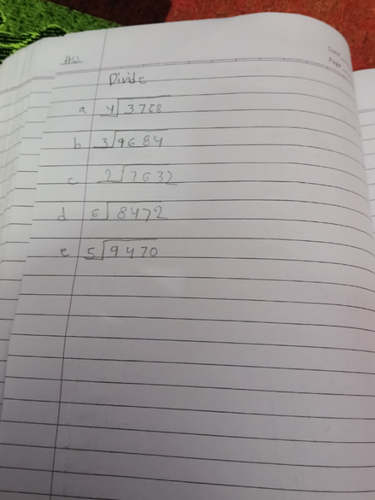 HW
Date
Page
Divide
a 4⟌3728
b 3⟌9684
c 2⟌7632
d 6⟌8472
e 5⟌9470